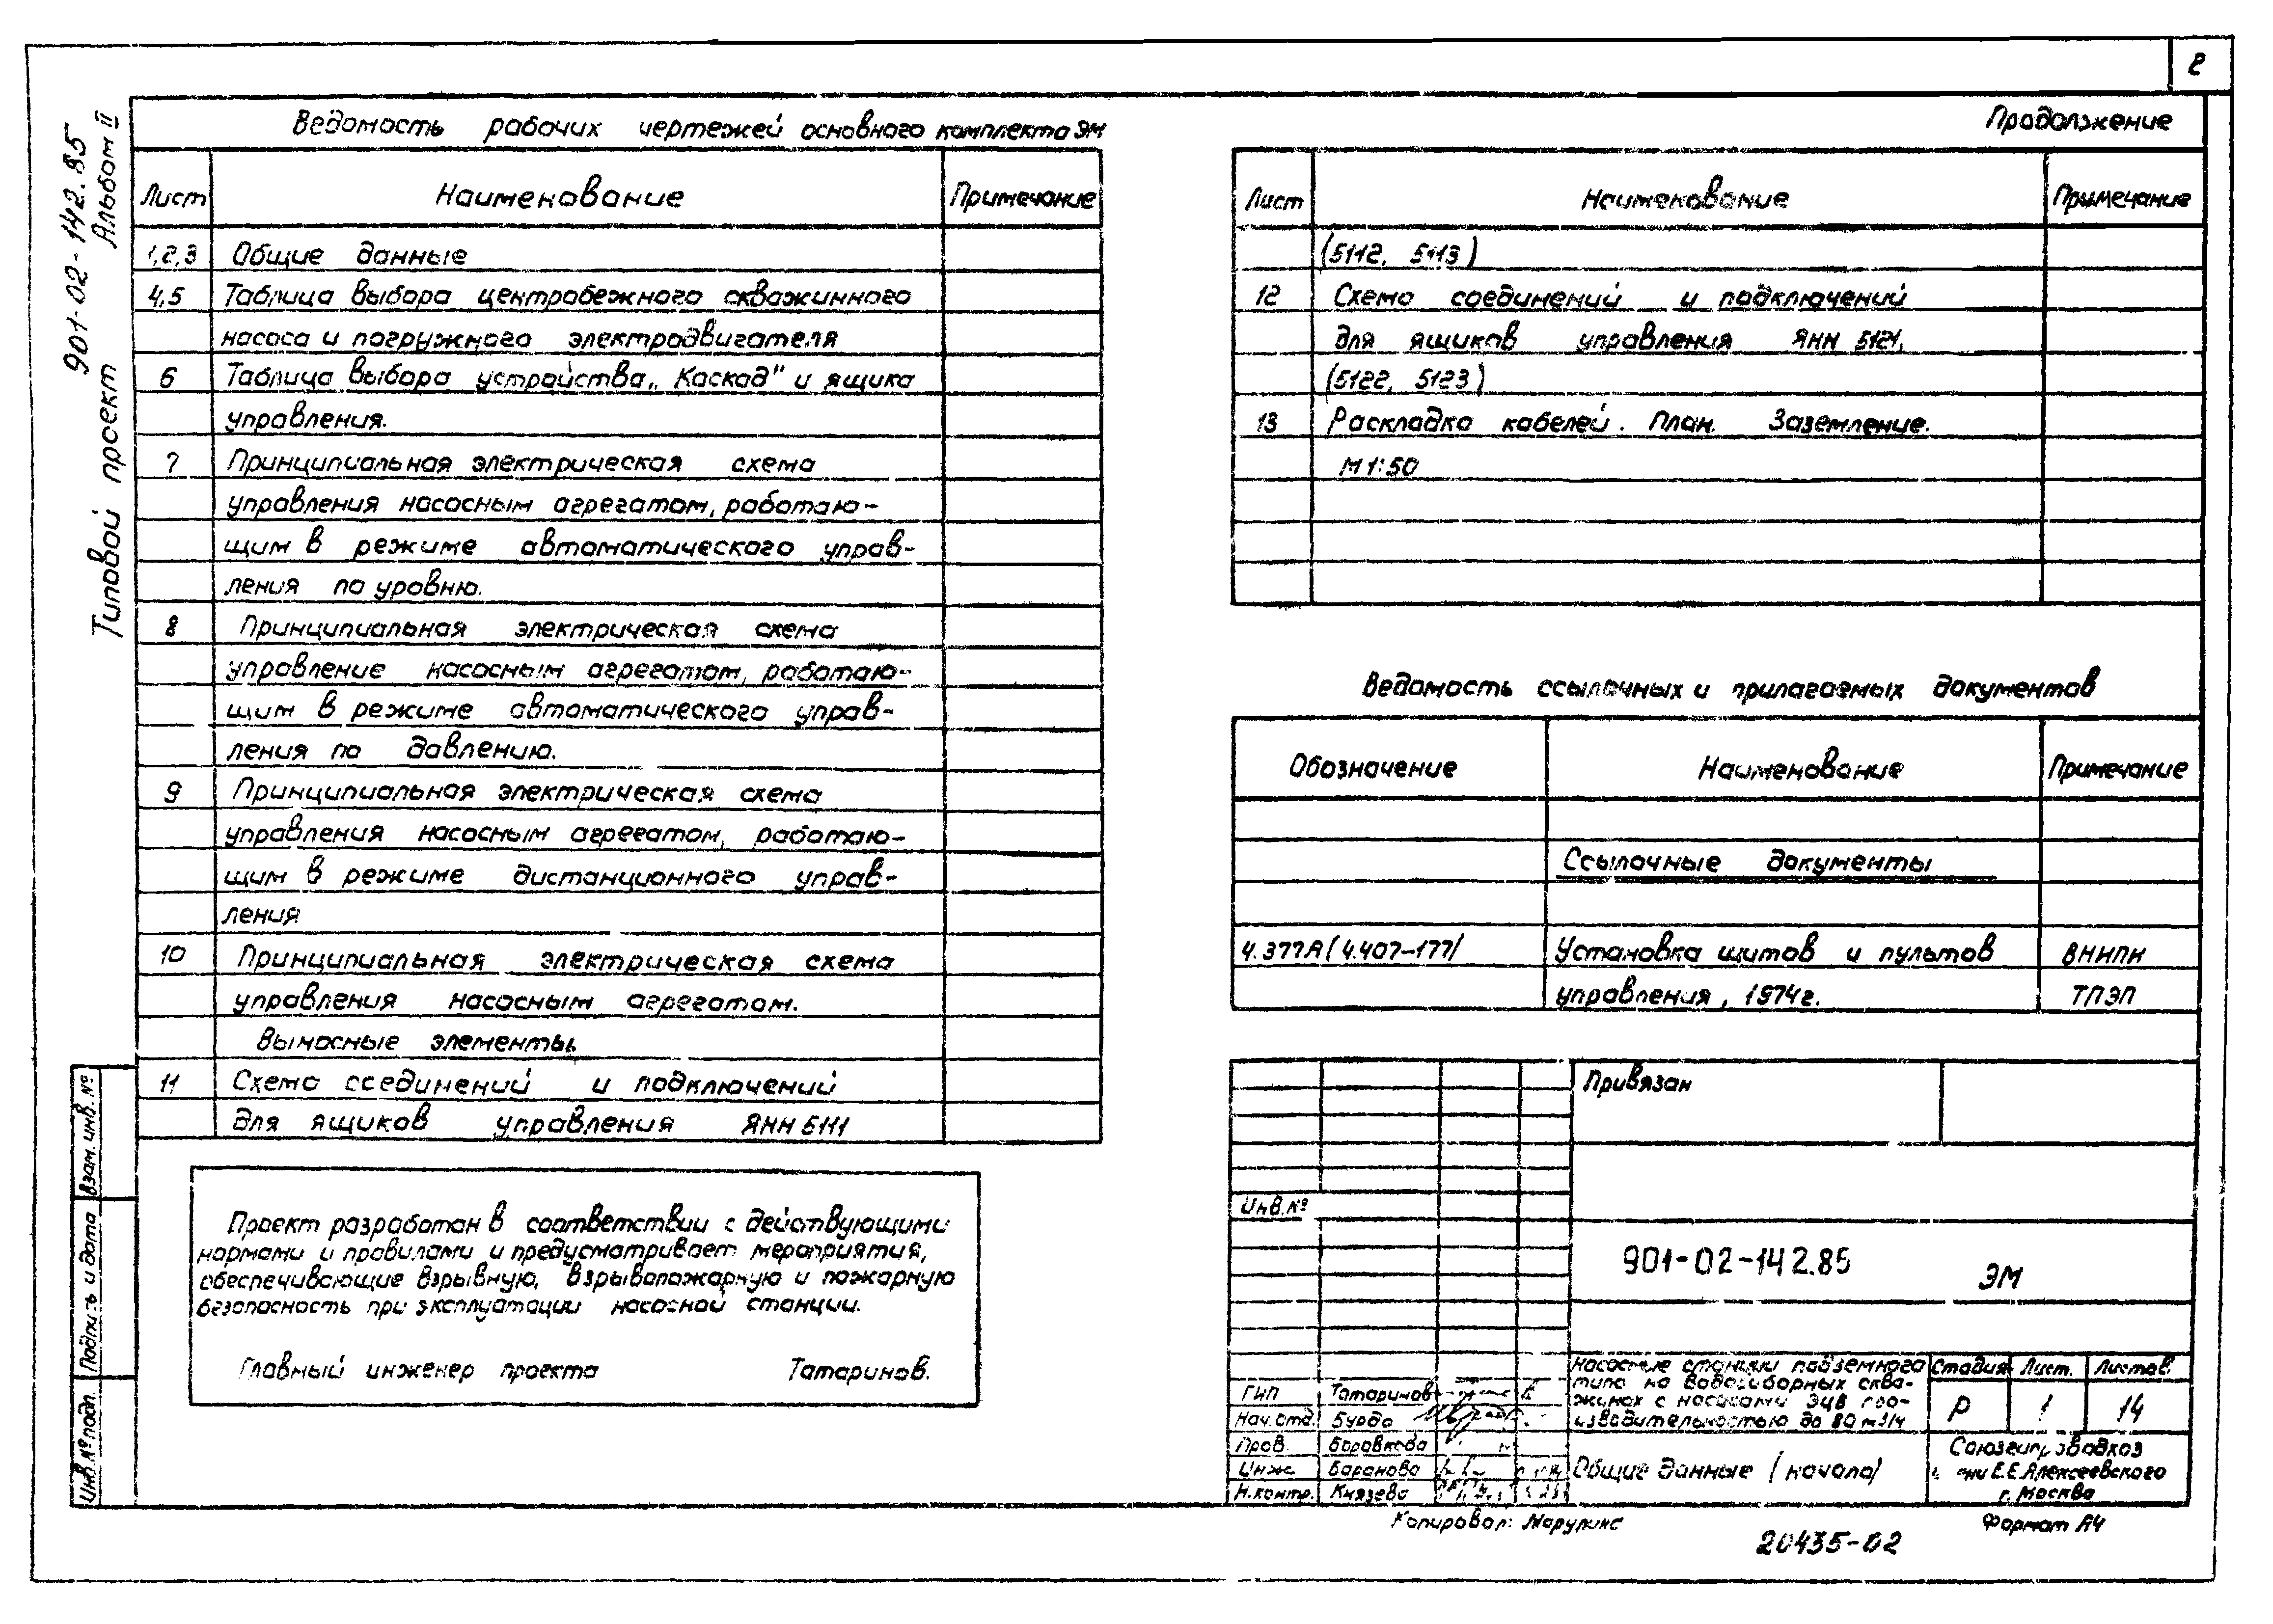 2
901-02-142.85
Альбом II
Типовой проект
Ведомость рабочих чертежей основного комплекта ЭМ
Лист Наименование Примечание
1,2,3 Общие данные
4,5 Таблица выбора центробежного скважинного
насоса и погружного электродвигателя
6 Таблица выбора устройства „Каскад" и ящика
управления.
7 Принципиальная электрическая схема
управления насосным агрегатом, работаю-
щим в режиме автоматического управ-
ления по уровню.
8 Принципиальная электрическая схема
управление насосным агрегатом, работаю-
щим в режиме автоматического управ-
ления по давлению.
9 Принципиальная электрическая схема
управления насосным агрегатом, работаю-
щим в режиме дистанционного управ-
ления
10 Принципиальная электрическая схема
управления насосным агрегатом.
Выносные элементы.
11 Схема соединений и подключений
для ящиков управления ЯНН 5111
Продолжение
Лист Наименование Примечание
(5112, 5113)
12 Схема соединений и подключений
для ящиков управления ЯНН 5121,
(5122, 5123)
13 Раскладка кабелей. План. Заземление.
М 1:50
Ведомость ссылочных и прилагаемых документов
Обозначение Наименование Примечание
Ссылочные документы
4.377А (4.407-177/ Установка щитов и пультов ВНИПИ
управления, 1974г. ТПЭП
Проект разработан в соответствии с действующими
нормами и правилами и предусматривает мероприятия,
обеспечивающие взрывную, взрывопожарную и пожарную
безопасность при эксплуатации насосной станции.
Главный инженер проекта Татаринов.
Взам. инв. №
Подпись и дата
Инв. № подл.
Привязан
Инв. №
901-02-142.85 ЭМ
Насосные станции подземного
типа на водозаборных сква-
жинах с насосами ЭЦВ про-
изводительностью до 80 м3/ч
Стадия Лист. Листов
Р 1 14
ГИП Татаринов
Нач. отд. Бурдо
Пров. Боровкова
Инж. Баранова
Н. контр. Князева
Общие данные (начало)
Союзгипроводхоз
им Е.Е.Алексеевского
г. Москва
Копировал:
Формат А4
20435-02